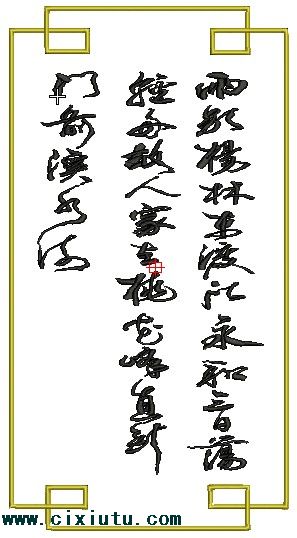 雨歇楊林東渡頭永和三日蕩
輕舟故人家在桃花岸直到
門前溪水流
www.cixiutu.com